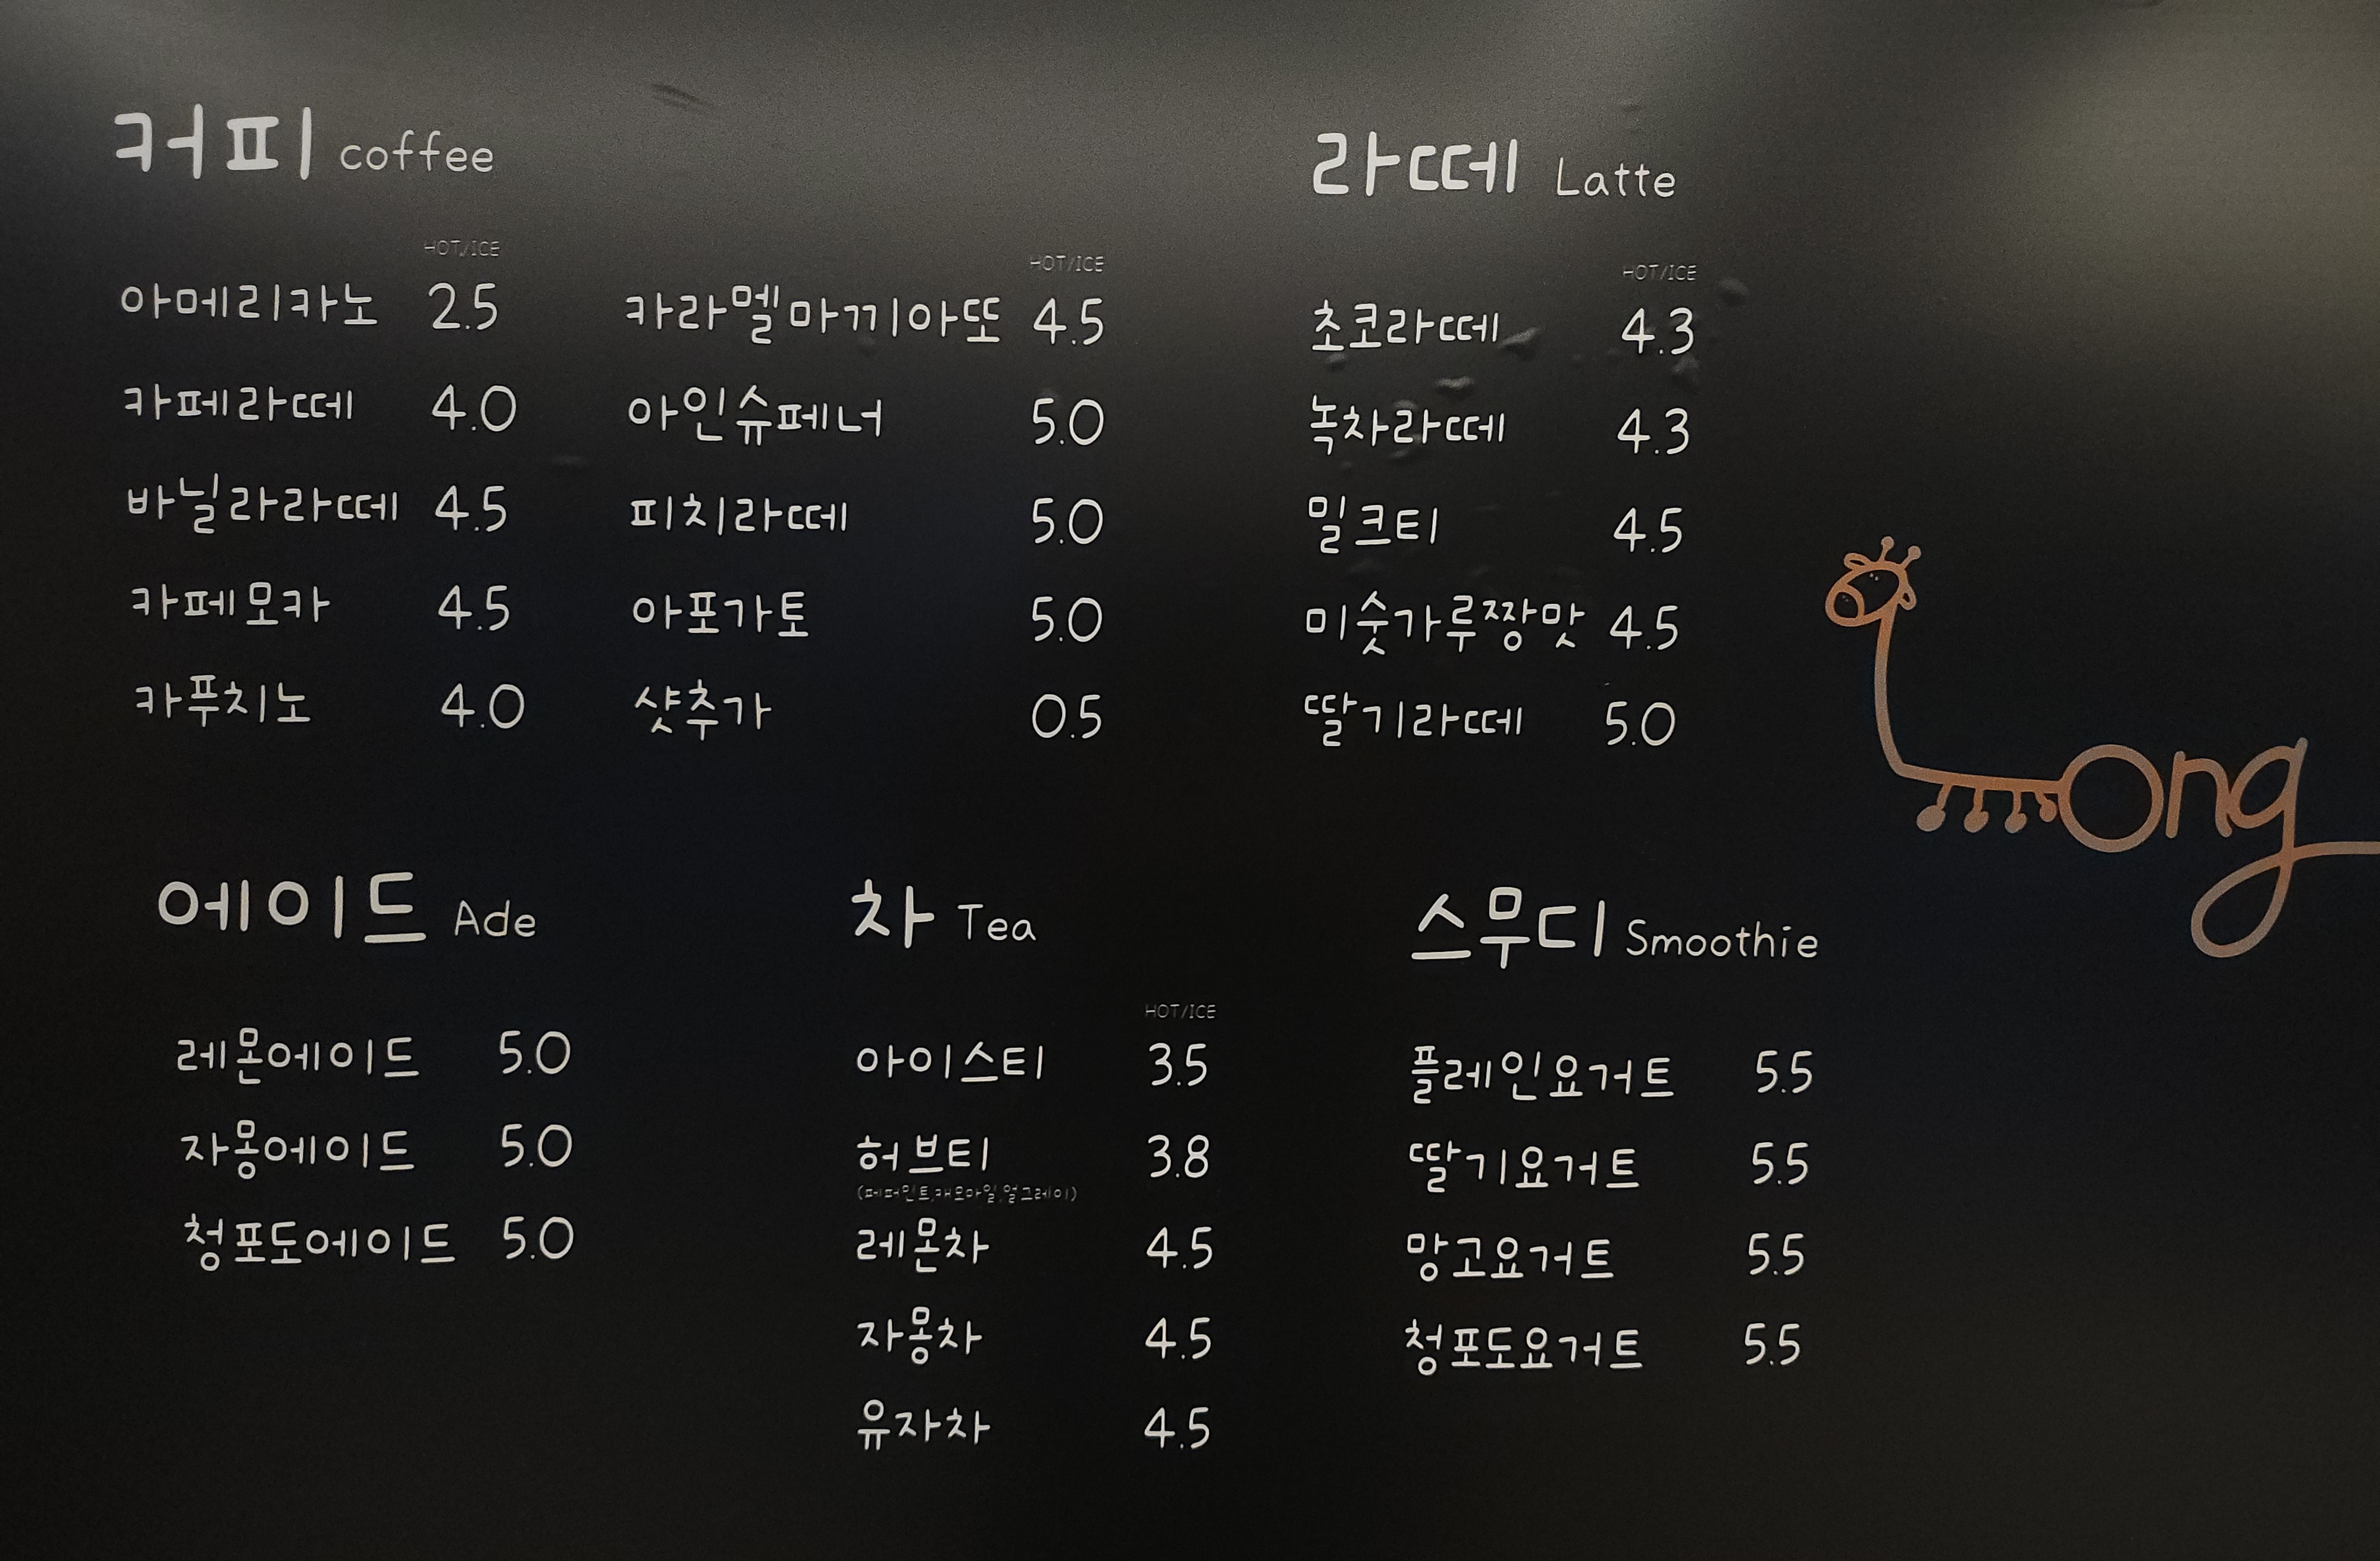 커피 coffee
HOT/ICE
아메리카노 2.5
카페라떼 4.0
바닐라라떼 4.5
카페모카 4.5
카푸치노 4.0
HOT/ICE
카라멜마끼아또 4.5
아인슈페너 5.0
피치라떼 5.0
아포가토 5.0
샷추가 0.5
라떼 Latte
HOT/ICE
초코라떼 4.3
녹차라떼 4.3
밀크티 4.5
미숫가루짱맛 4.5
딸기라떼 5.0
Long
에이드 Ade
레몬에이드 5.0
자몽에이드 5.0
청포도에이드 5.0
차 Tea
HOT/ICE
아이스티 3.5
허브티 3.8
(페퍼민트,캐모마일,얼그레이)
레몬차 4.5
자몽차 4.5
유자차 4.5
스무디 Smoothie
플레인요거트 5.5
딸기요거트 5.5
망고요거트 5.5
청포도요거트 5.5